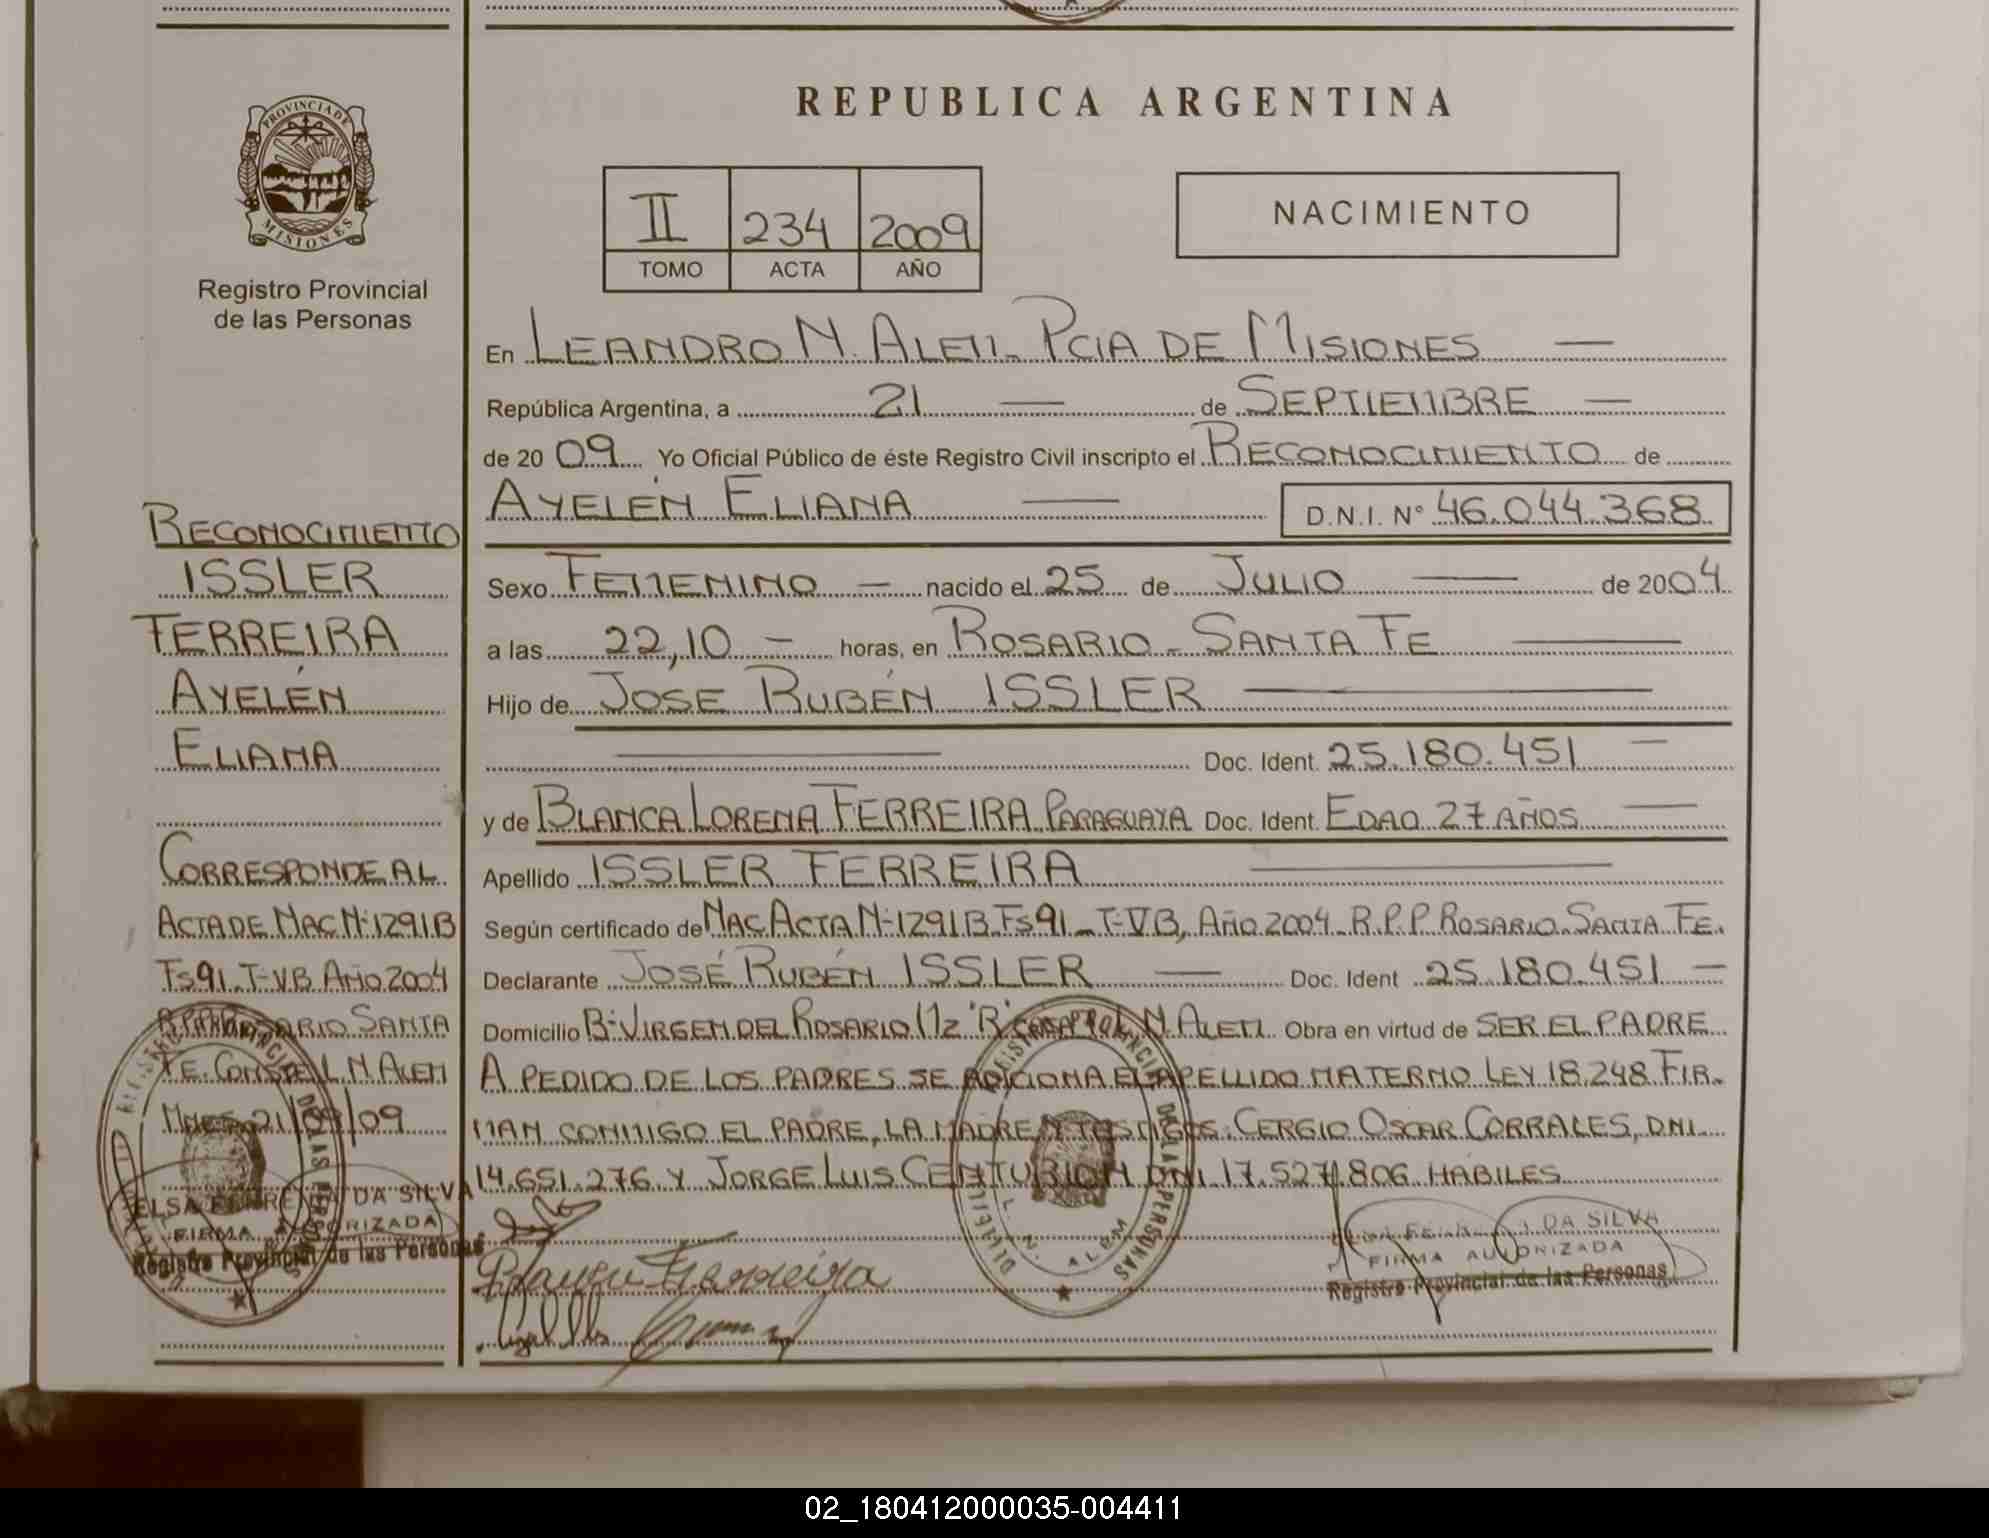 REPUBLICA ARGENTINA
PROVINCIA DE MISIONES
Registro Provincial
de las Personas
II 234 2009
TOMO ACTA AÑO
NACIMIENTO
En LEANDRO N. ALEM - PCIA DE MISIONES —
República Argentina, a 21 — de SEPTIEMBRE —
de 20 09 Yo Oficial Público de éste Registro Civil inscripto el RECONOCIMIENTO de
AYELÉN ELIANA — D.N.I. N° 46.044.368
Sexo FEMENINO — nacido el 25 de JULIO — de 2004
a las 22,10 — horas, en ROSARIO - SANTA FE —
Hijo de JOSE RUBÉN ISSLER —
— Doc. Ident. 25.180.451 —
y de BLANCA LORENA FERREIRA PARAGUAYA Doc. Ident. EDAD 27 AÑOS —
Apellido ISSLER FERREIRA —
Según certificado de NAC. ACTA N° 1291B. Fs 91 - T-VB, AÑO 2004 - R.P.P. ROSARIO. SANTA FE.
Declarante JOSÉ RUBÉN ISSLER — Doc. Ident 25.180.451 —
Domicilio B° VIRGEN DEL ROSARIO Mz "R" L.N. ALEM. Obra en virtud de SER EL PADRE
A PEDIDO DE LOS PADRES SE ADICIONA EL APELLIDO MATERNO LEY 18.248 FIR-
MAN CONMIGO EL PADRE, LA MADRE Y TESTIGOS: CERGIO OSCAR CORRALES, DNI
14.651.276 Y JORGE LUIS CENTURION DNI 17.527.806 HÁBILES
RECONOCIMIENTO
ISSLER
FERREIRA
AYELÉN
ELIANA
CORRESPONDE AL
ACTA DE NAC N° 1291B
Fs 91. T-VB AÑO 2004
R.P.P. ROSARIO SANTA
FE. CONSTE L.N. ALEM
Mnes 21/09/09
ELSA FERREIRA DA SILVA
FIRMA AUTORIZADA
Registro Provincial de las Personas
Ferreira
DA SILVA
FIRMA AUTORIZADA
Registro Provincial de las Personas
02_180412000035-004411